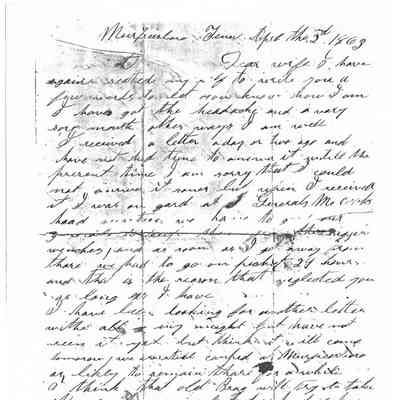 Murfreesboro Tenn Apr the 3d 1863
Dear wife I have
again seated my self to write you a
few words to let you know how I am
I have got the headache and a very
sory mouth other ways I am well
I received a letter a day or two ago and
have not had time to answer it untill the
present time I am sorry that I could
not answer it soner but when I received
it I was on gard at Generals Mc Cooks
head we have to go our
wenches, and as soon as I got away from
there we had to go on picket 24 hours
and that is the reason that neglected you
as long as I have
I have been looking for another letter
with all my might but have not
receve it yet but think it will come
tomorrow, we are still camped at Murfreesboro
ar likely to remain there for a while
I think that old Brag will try to take